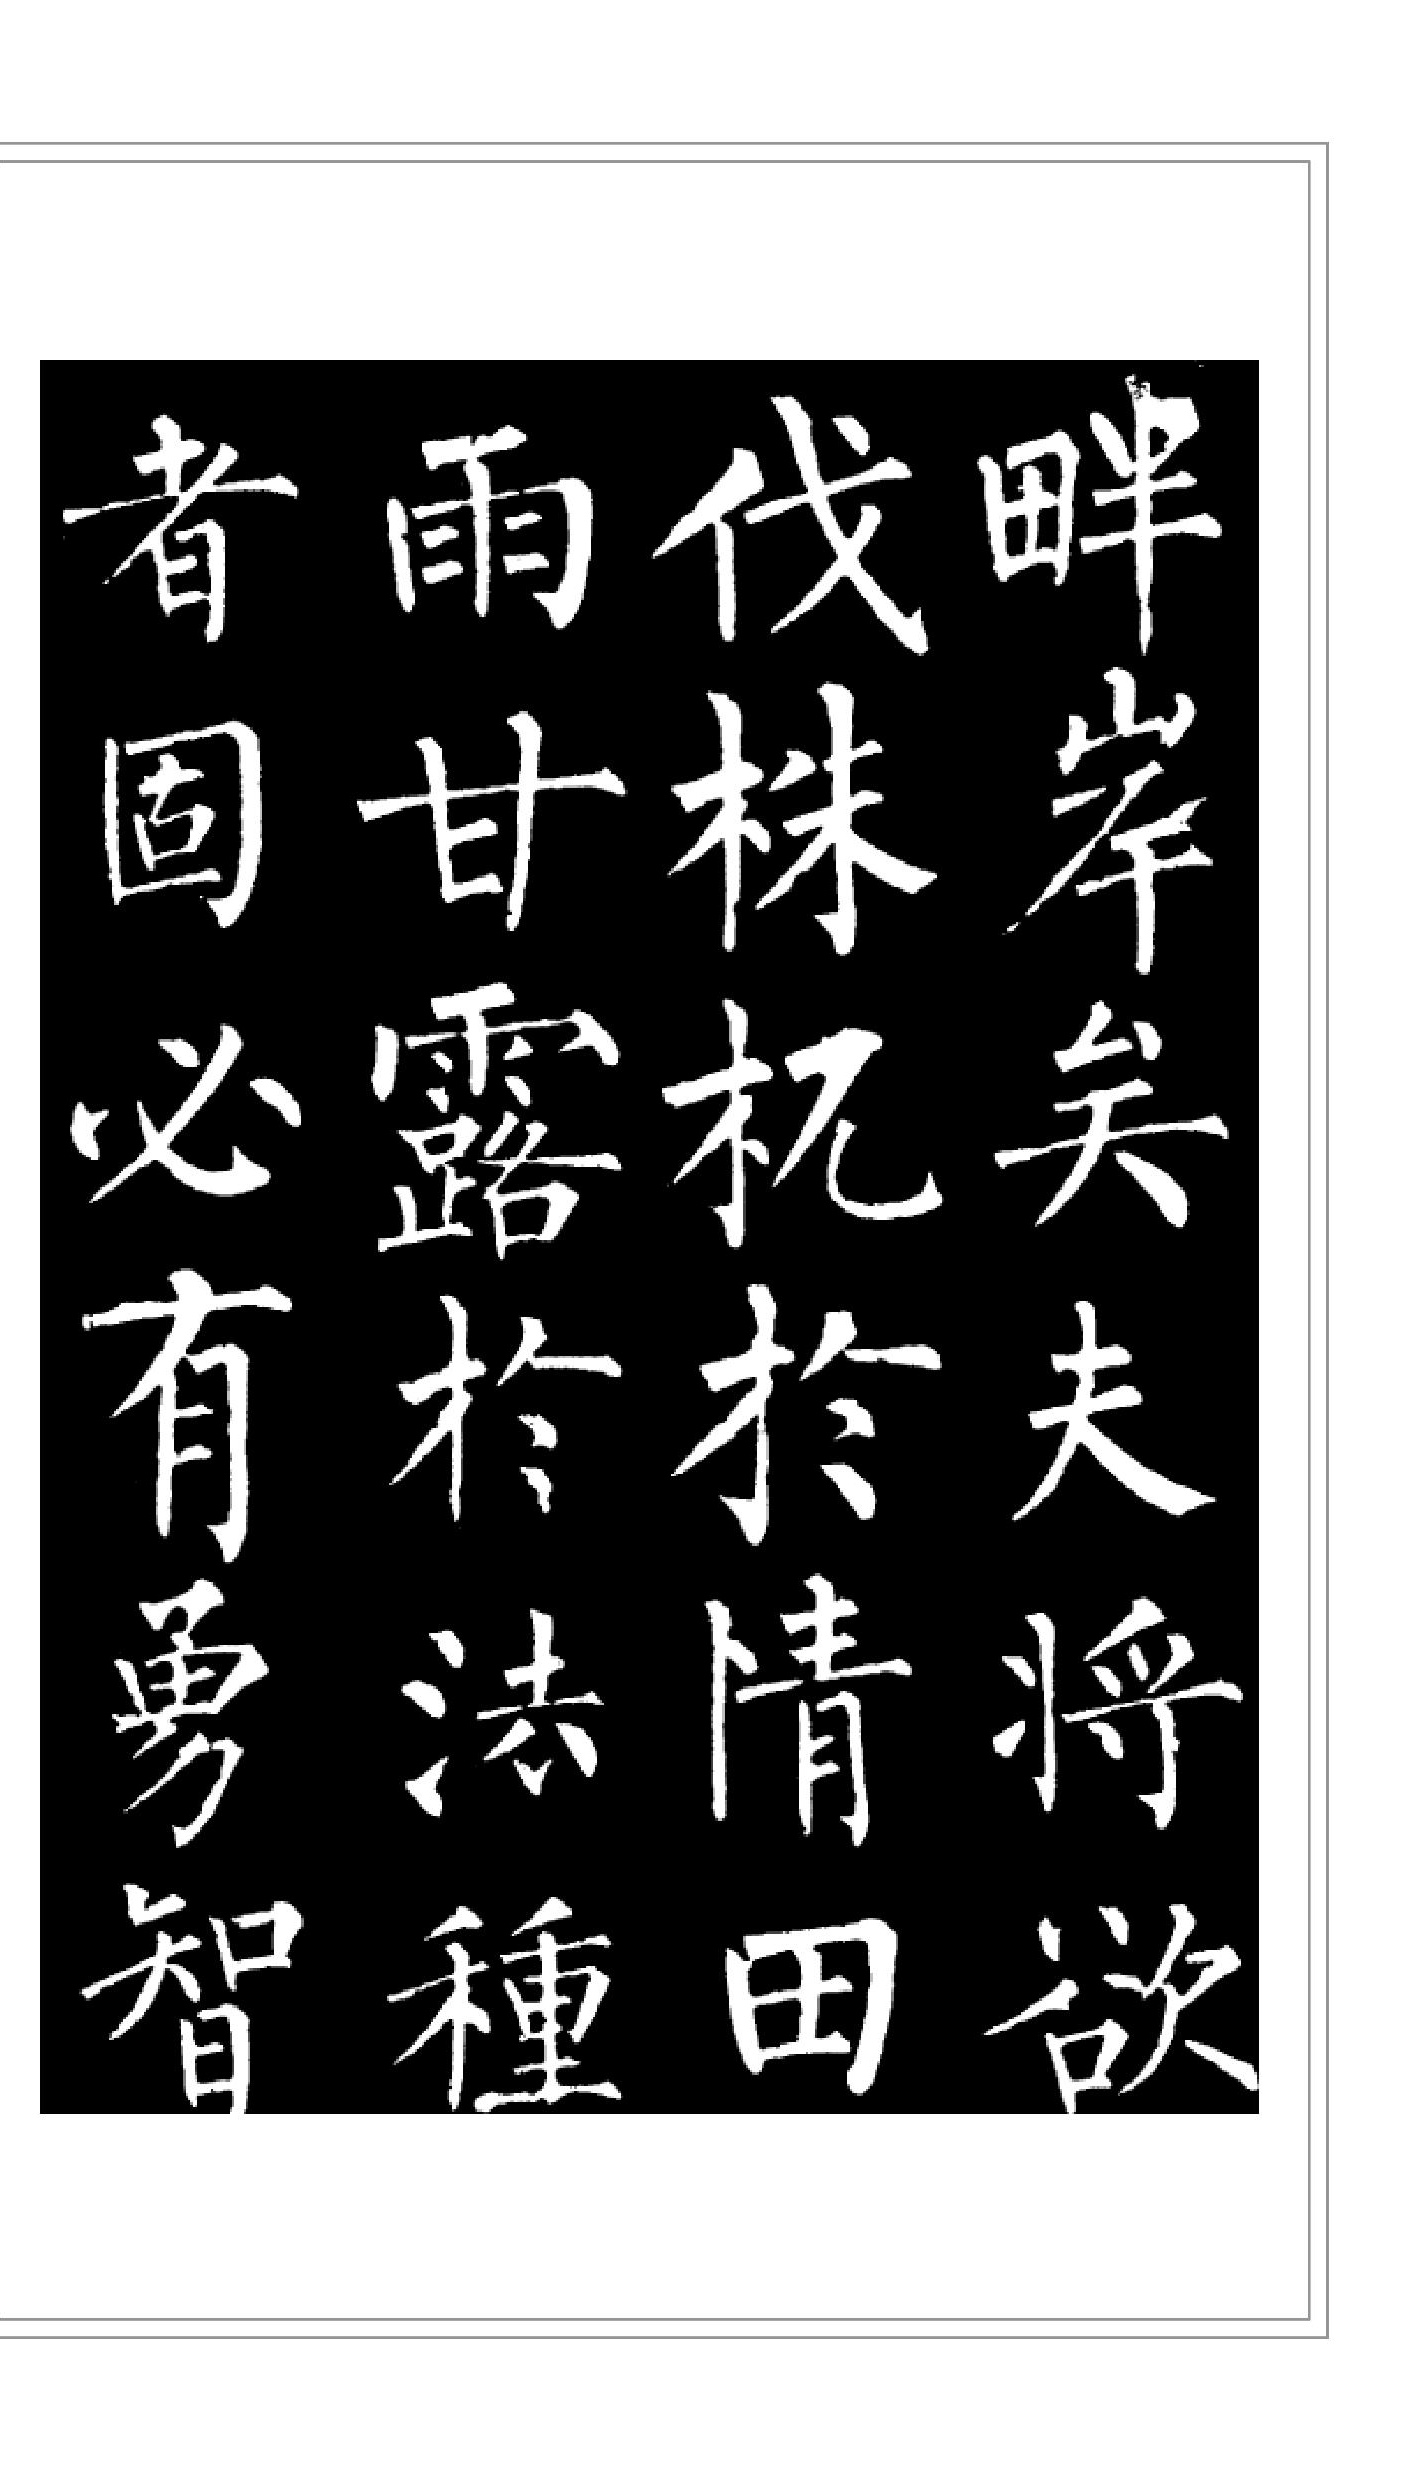 畔岸矣夫将欲
伐株杌於情田
雨甘露於法種
者固必有勇智